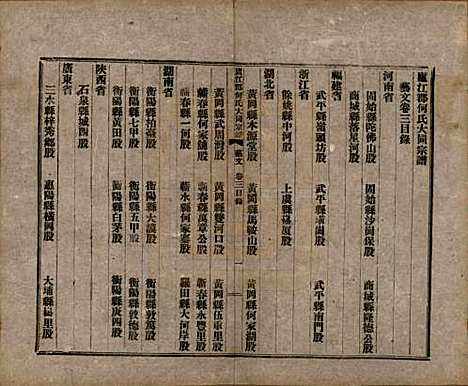 廬江郡何氏大同宗譜
藝文卷三目錄
河南省
固始縣陀佛山股 固始縣沙崗保股 商城縣隆德公股
商城縣落星河股
福建省
武平縣 武平縣 武平縣南門股
浙江省
餘姚縣中河股 上虞縣蔴廈股
湖北省
黃岡縣本源堂股 黃岡縣馬鞍山股 黃岡縣何家湖股
廬江郡何氏大同宗譜 藝文 卷三目錄 一
黃岡縣武周灣股 黃岡縣雙河口股 黃岡縣伍車里股
蘄春縣何家舖股 蘄春縣萬章公股 蘄春縣永豐里股
蘄春縣一何股 蘄水縣何家臺股 羅田縣大河岸股
湖南省
衡陽縣柏臺股 衡陽縣大謨股 衡陽縣敦篤股
衡陽縣七甲股 衡陽縣五甲股 衡陽縣敦德股
衡陽縣黃田股 衡陽縣白茅股 衡陽縣庚四股
陝西省
石泉縣城四股
廣東省
三水縣祥秀鄉股 惠陽縣橫岡股 大埔縣楊里股